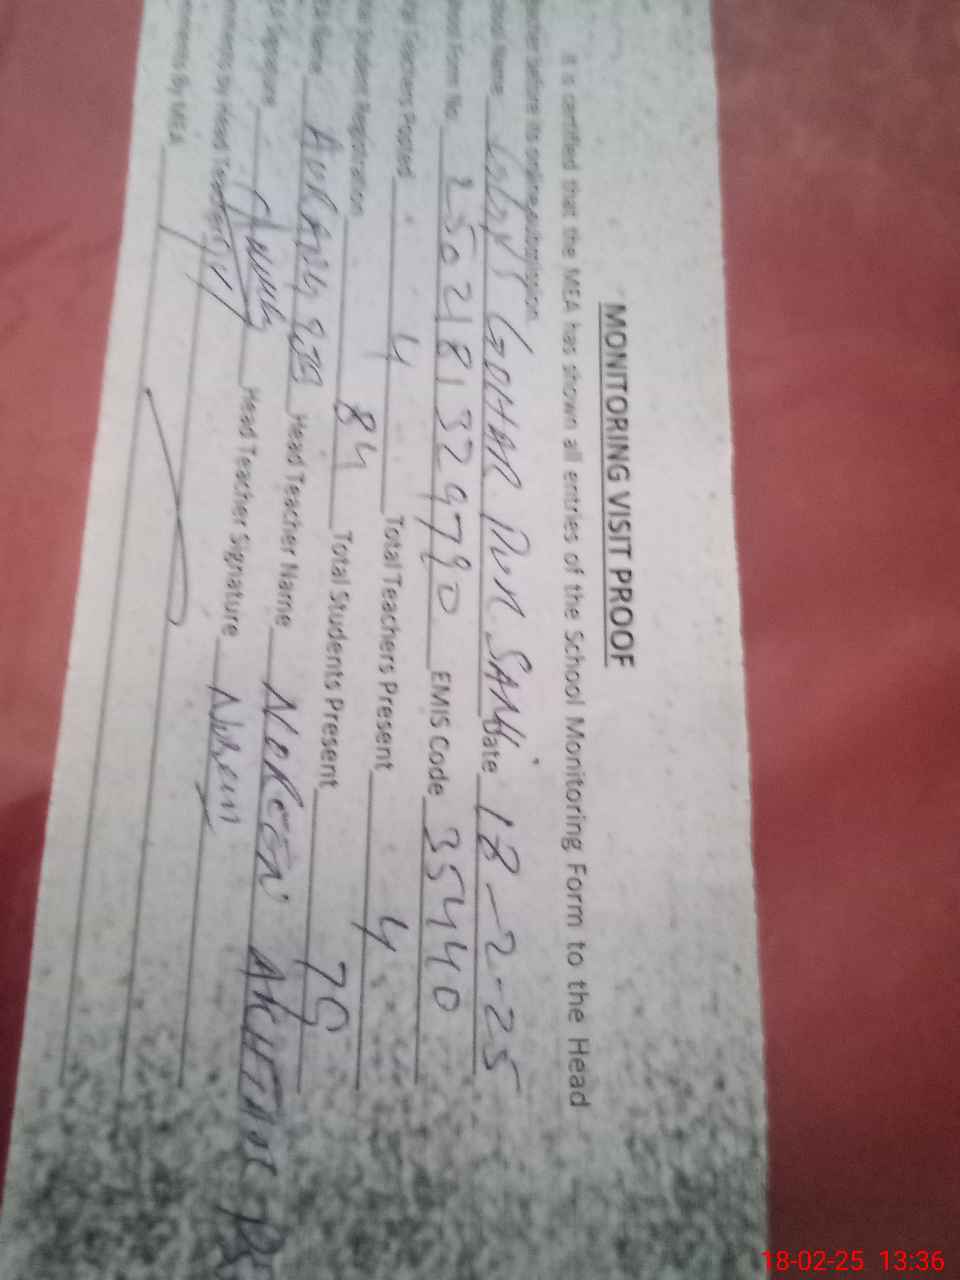 MONITORING VISIT PROOF
It is certified that the MEA has shown all entries of the School Monitoring Form to the Head
before its online submission.
Name GGPS GOHAR PUR SANI Date 18-2-25
Form No. 2502181329790 EMIS Code 35440
Teachers Posted 4 Total Teachers Present 4
Student Registration 84 Total Students Present 76
Name Head Teacher Name NOREEN AKHTAR
Signature Head Teacher Signature Noreen
by Head Teacher
By MEA
18-02-25 13:36